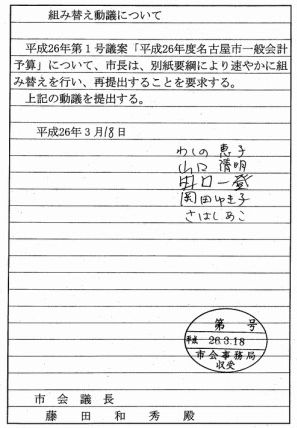 組み替え動議について
平成26年第1号議案「平成26年度名古屋市一般会計
予算」について、市長は、別紙要綱により速やかに組
み替えを行い、再提出することを要求する。
上記の動議を提出する。
平成26年3月18日
わしの恵子
山口清明
田口一登
岡田ゆき子
さはしあこ
第 号
平成 26.3.18
市会事務局
収受
市会議長
藤田和秀殿